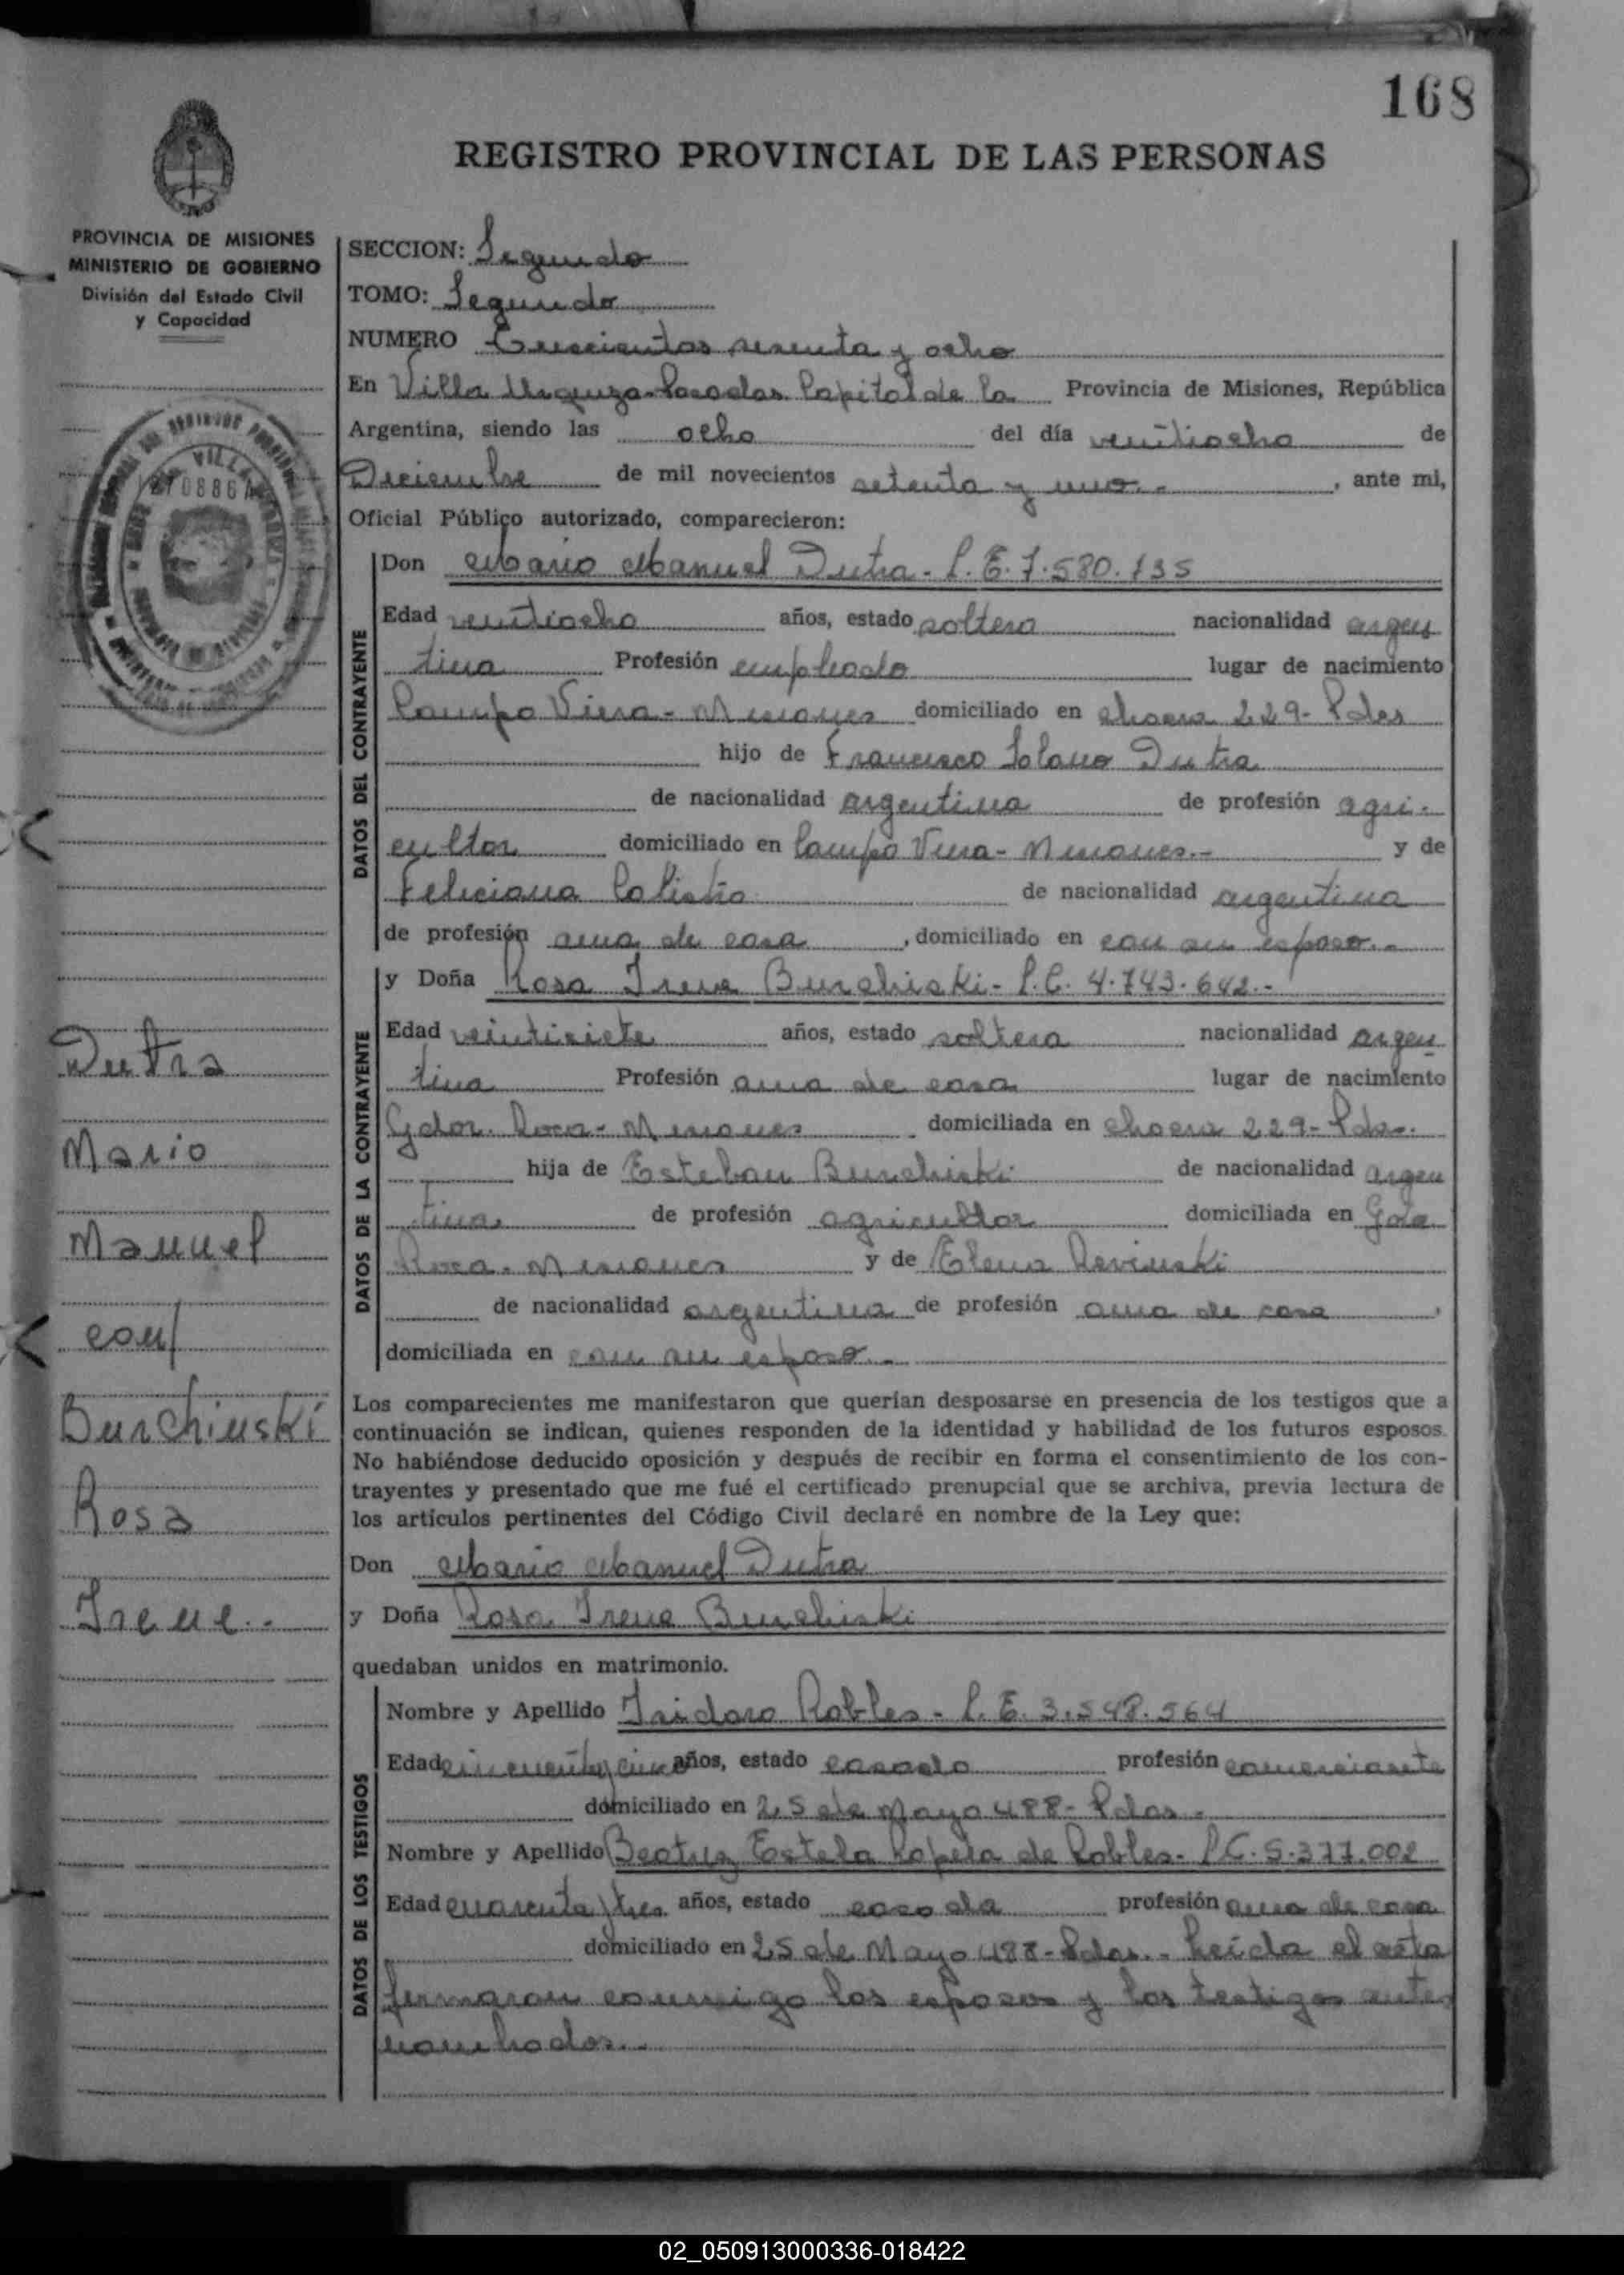 168
REGISTRO PROVINCIAL DE LAS PERSONAS
PROVINCIA DE MISIONES
MINISTERIO DE GOBIERNO
División del Estado Civil
y Capacidad
SECCION: Segunda
TOMO: Segundo
NUMERO sesenta y ocho
En Villa Urquiza-Posadas Capital de la Provincia de Misiones, República
Argentina, siendo las ocho del día veintiocho de
Diciembre de mil novecientos setenta y uno.- , ante mi,
Oficial Público autorizado, comparecieron:
DATOS DEL CONTRAYENTE
Don Mario Manuel Dutra - L.E. 7.580.135
Edad veintiocho años, estado soltero nacionalidad argen
tina Profesión empleado lugar de nacimiento
Campo Viera - Misiones domiciliado en chacra 229- Pdas
hijo de Francisco Solano Dutra
de nacionalidad argentina de profesión agri-
cultor domiciliado en Campo Viera - Misiones.- y de
Feliciana de nacionalidad argentina
de profesión ama de casa , domiciliado en con su esposo.-
DATOS DE LA CONTRAYENTE
y Doña Rosa Irene Burchiski - L.C. 4.743.642.-
Edad veintisiete años, estado soltera nacionalidad argen
tina Profesión ama de casa lugar de nacimiento
Gdor. Roca - Misiones domiciliada en chacra 229- Pdas.
hija de Esteban Burchiski de nacionalidad argen
tina de profesión agricultor domiciliada en
Roca - Misiones y de Elena
de nacionalidad argentina de profesión ama de casa ,
domiciliada en con su esposo.-
Los comparecientes me manifestaron que querían desposarse en presencia de los testigos que a
continuación se indican, quienes responden de la identidad y habilidad de los futuros esposos.
No habiéndose deducido oposición y después de recibir en forma el consentimiento de los con-
trayentes y presentado que me fué el certificado prenupcial que se archiva, previa lectura de
los artículos pertinentes del Código Civil declaré en nombre de la Ley que:
Don Mario Manuel Dutra
y Doña Rosa Irene Burchiski
quedaban unidos en matrimonio.
DATOS DE LOS TESTIGOS
Nombre y Apellido Isidoro Robles - L.E. 3.548.564
Edad años, estado casado profesión comerciante
domiciliado en 25 de Mayo 488- Pdas.
Nombre y Apellido Beatriz Estela de Robles - L.C. 5.377.002
Edad cuarenta y tres años, estado casada profesión ama de casa
domiciliado en 25 de Mayo 488- Pdas.- Leída el acta
firmaron conmigo los esposos y los testigos antes
nombrados.-
Dutra
Mario
Manuel
con
Burchinski
Rosa
Irene.-
02_050913000336-018422